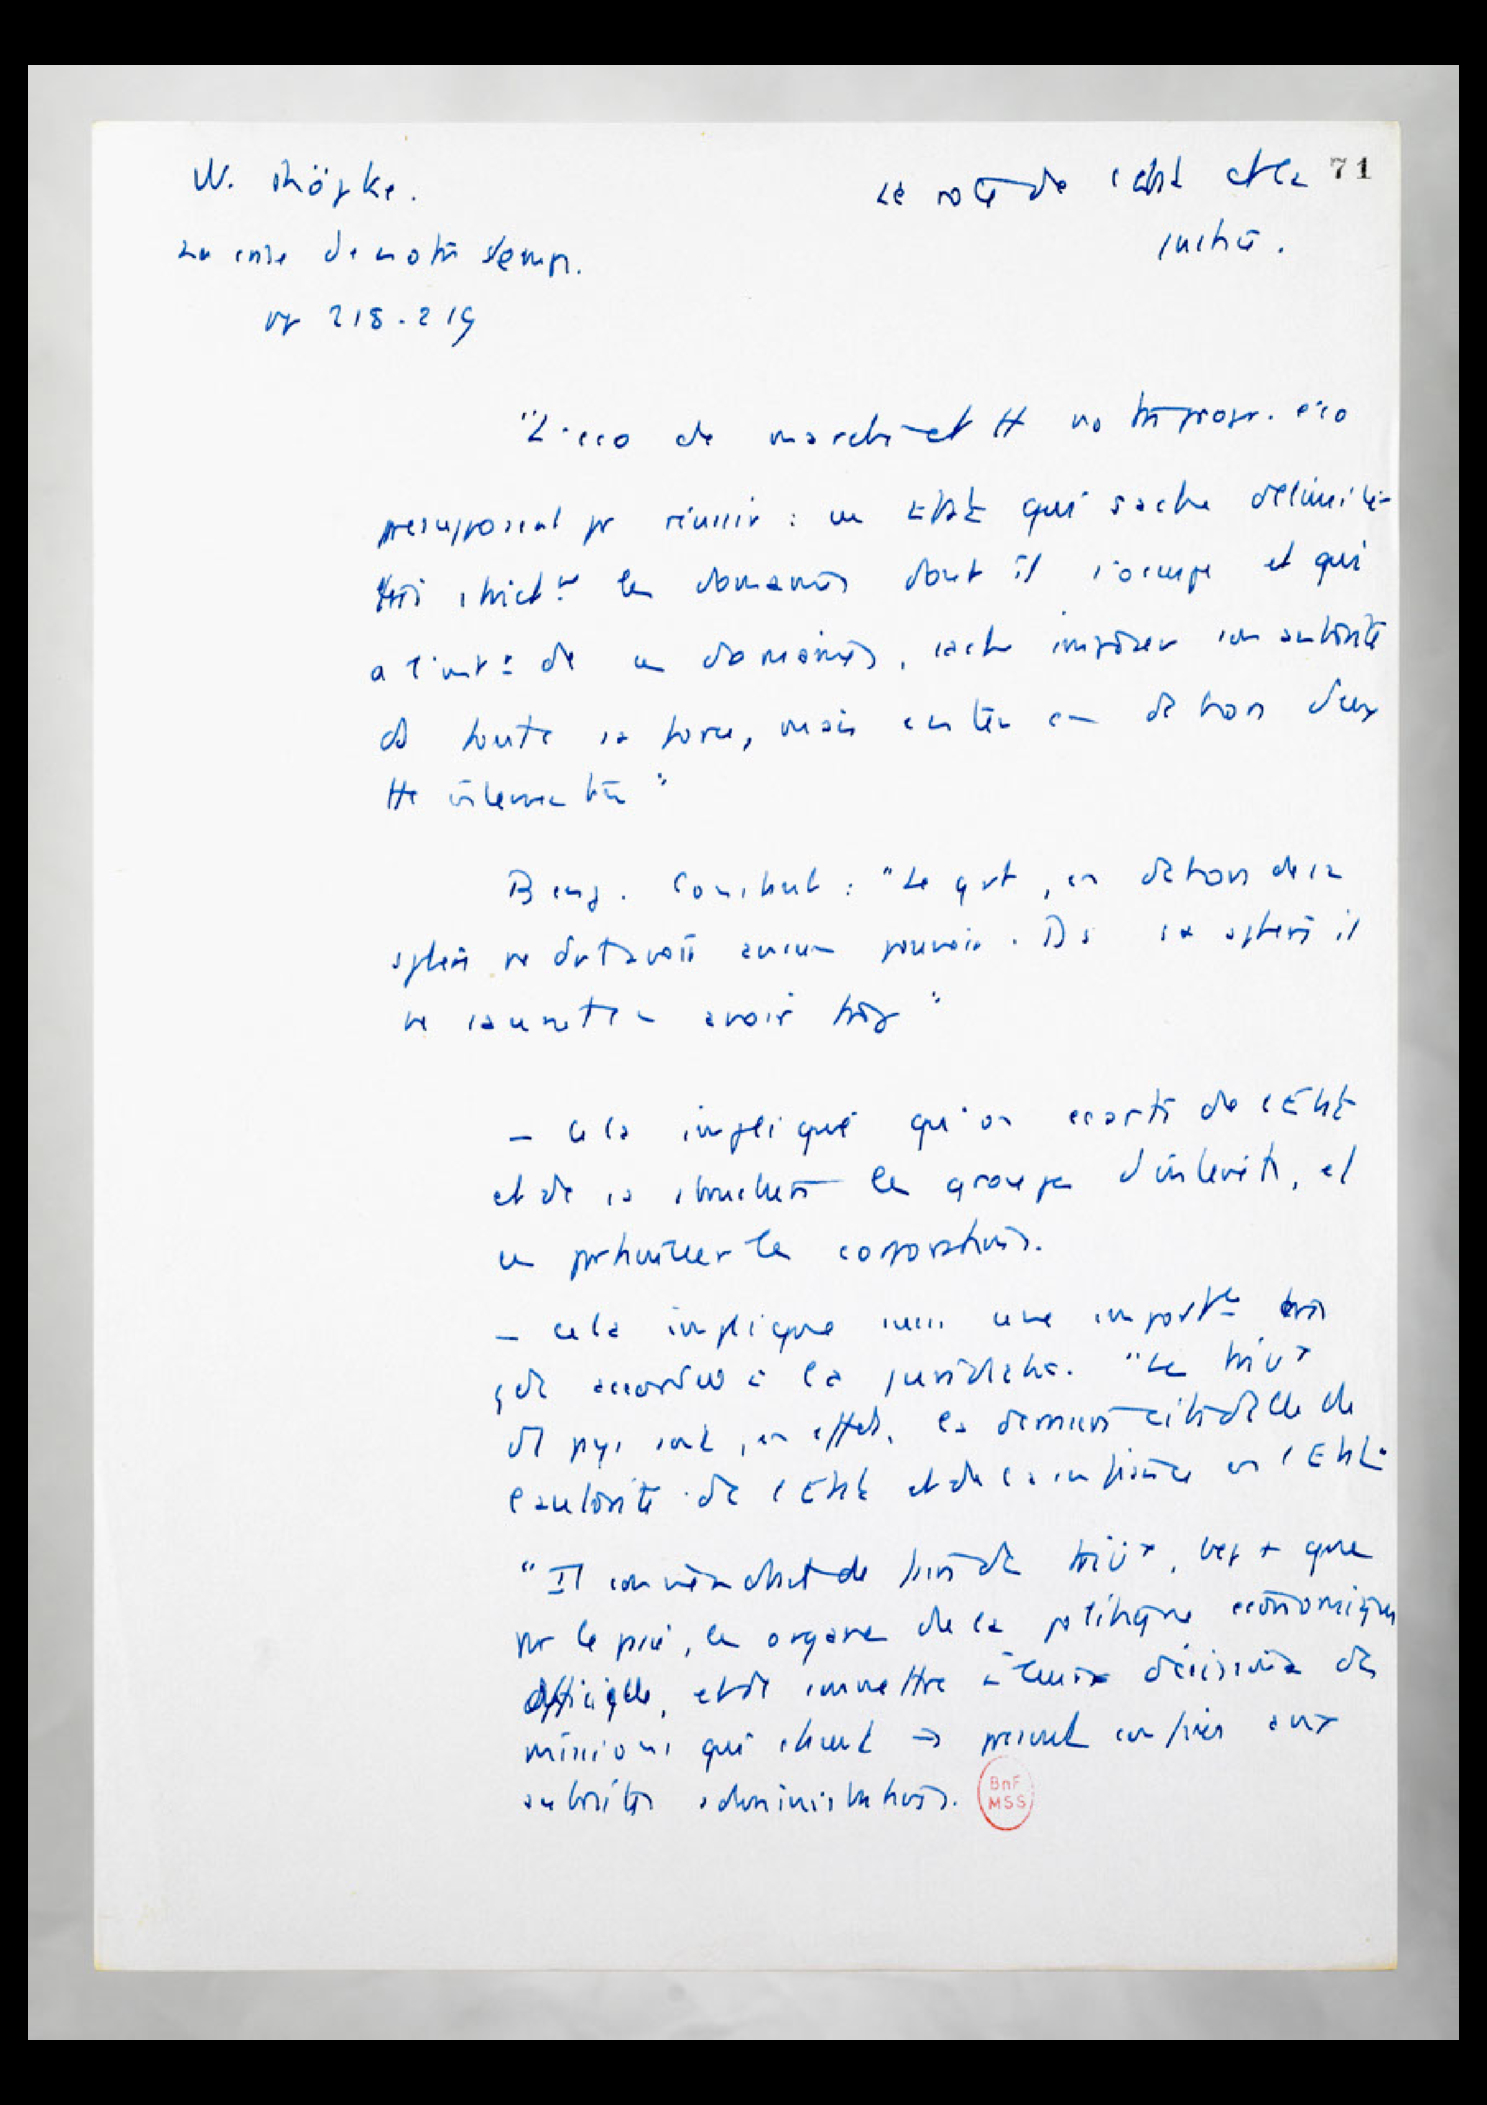 W. Röpke.
La crise de notre temps.
pp 218-219
Le rôle de l'Etat et la
justice.
71
"L'éco de marché et tt no tre progr. éco
presupposent pr réussir : un Etat qui sache délimiter
très strict^nt les domaines dont il s'occupe et qui
a l'int^r de ces domaines, sache imposer son autorité
ds toute sa force, mais s'interdise en dehors d'eux
tte intervention"
Benj. Constant : "Le gvt, en dehors de sa
sphère ne doit avoir aucun pouvoir. Ds sa sphère il
ne saurait en avoir trop"
– cela implique qu'on ecarte de l'Etat
et de sa structure les groupes d'intérêts, et
en particulier les corporations.
– cela implique aussi une import^ce très
gde accordée à la juridiction. "Les tribx
du pays sont, en effet, la dernière citadelle de
l'autorité de l'Etat et de la confiance en l'Etat"
"Il conviendrait de faire des tribx, bep + que
par le passé, les organes de la politique économique
officielle, et de soumettre à leurs décisions des
missions qui étaient → présent confiées aux
autorités administratives.
BnF
MSS